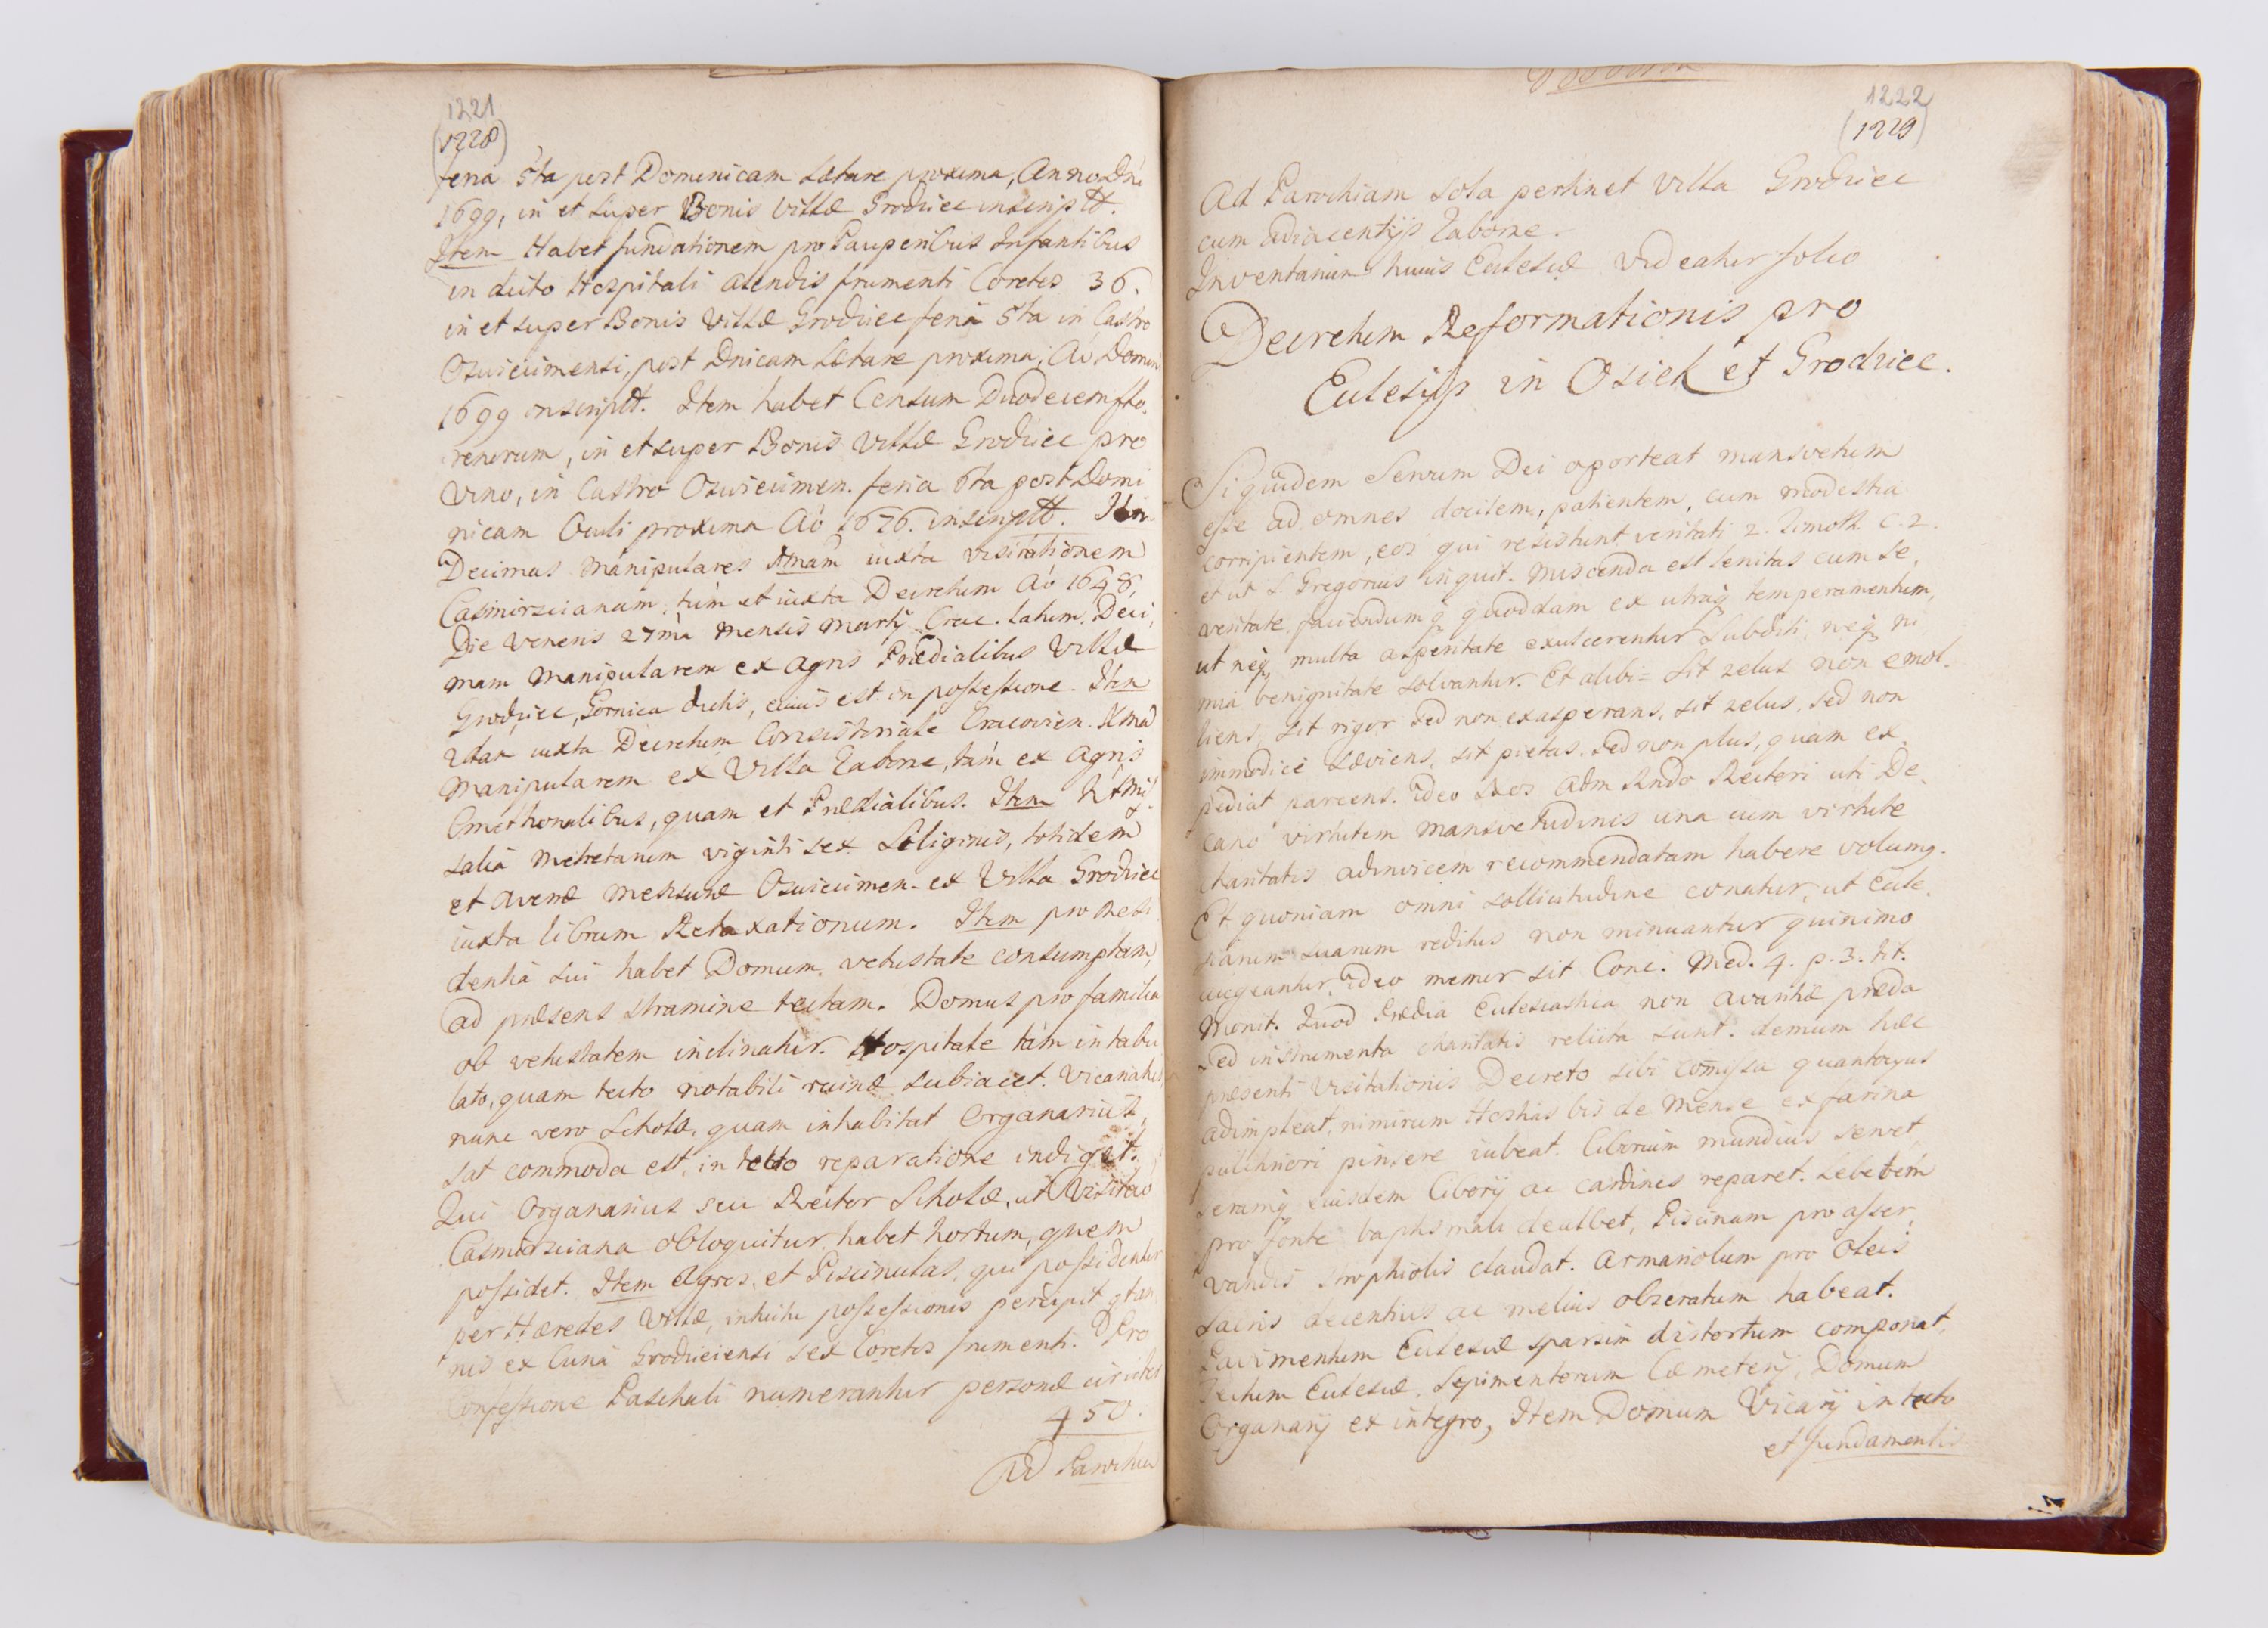 1221
(1228)
feria 5ta post Dominicam Lætare proxima, Anno Dni
1699, in et super Bonis Villæ Grodziec inscriptt.
Item Habet fundationem pro Pauperibus Infantibus
in dicto Hospitali alendis frumenti Coretos 36.
in et super Bonis Villæ Grodziec feria 5ta in Castro
Oswiecimensi, post Dnicam Lætare proxima, Aő Domini
1699 inscriptt. Item habet Censum Duodecem flo,
renorum, in et super Bonis Villæ Grodziec pro
vino, in Castro Oswiecimen. feria 6ta post Domi
nicam Oculi proxima Aő 1676. inscriptt. Item
Decimas Manipulares Xmam iuxta visitationem
Casmirscianam, túm et iuxta Decretum Aő 1648,
Die Veneris 27má Mensis Martij Crac. latum, Deci,
mam Manipularem ex Agris Prædialibus Villæ
Grodziec, Gornica dictis, cuius est in possessione. Item
iuxta Decretum Consistoriale Cracovien. Xmã
Manipularem ex Villa Zabőrze, tám ex Agris
Cmethonalibus, quam et Prædialibus. Item Mis,
salia Metretarum viginti sex Siliginis, totidem
et Avenæ Mensuræ Oswiecimen. ex Villa Grodziec
iuxta librum Retaxationum. Item pro Resi,
dentiá sui habet Domum, vetustate consumptam,
ad præsens stramine tectam. Domus pro familia
ob vetustatem inclinatur. Hospitale tám in tabu
lato, quam tecto notabili ruinæ subiacet. Vicariatus
nunc vero Scholæ, quam inhabitat Organarius,
sat commoda est, in tecto reparatione indiget.
Qui Organarius seu Rector Scholæ, ut Visitatio
Casmirsciana obloquitur, habet hortum, quem
possidet. Item Agros, et Piscinulas, qui possidentur
per Hæredes Villæ, intuitu possessionis percipit gtan,
nis ex Curiá Grodzieciensi sex Coretos frumenti. Pro
Confessione Paschali numerantur personæ circiter
450.
Ad Parochia
1222
(1229)
Ad Parochiam sola pertinet Villa Grodziec
cum adiacentijs Zaborze.
Inventarium huius Ecclesiæ videatur folio
Decretum Reformationis pro
Ecclesijs in Osiek et Grodziec.
Siquidem Servum Dei oporteat mansvetum
esse ad omnes docilem, patientem, cum modestia
corripientem, eos qui resistunt veritati 2. Timoth. C. 2.
et ut S. Gregorius inquit. Miscenda est lenitas cum se,
veritate, faciendumq quoddam ex utraq temperamentum,
ut neq multa asperitate exulcerentur Subditi, neq ni
mia benignitate solvantur. Et alibi = Sit zelus non emol,
liens, sit rigor sed non exasperans, sit zelus, sed non
immodicé sæviens, sit pietas, sed non plus, quam ex,
pediat parcens. ideo Nos Adm Rndo Rectori uti De,
cano virtutem mansvetudinis una cum virtute
charitatis adinvicem recommendatam habere volumq.
Et quoniam omni sollicitudine conatur, ut Eccle,
siarum suarum reditus non minuantur quinimo
augeantur, ideo memor sit Conc. Med. 4. p. 3. tit.
Monit. Quod Prædia Ecclesiastica non avaritiæ præda
sed instrumenta charitatis relicta sunt. demum hæc
præsenti Visitationis Decreto sibi comissa quantocyus
adimpleat, nimirum Hostias bis de Mense ex farina
pulchriori pinsere iubeat. Ciborium mundius servet,
seramq eiusdem Ciborij ac cardines reparet. Lebetem
pro fonte baptismali dealbet, Piscinam pro asser,
vandis strophiolis claudat. Armariolum pro Oleis
sacris decentius ac melius obseratum habeat.
Pavimentum Ecclesiæ sparsim distortum componat,
Tectum Ecclesiæ, Sepimentorum Cæmeterij, Domum
Organarij ex integro, Item Domum Vicarij in tecto
et fundamentis